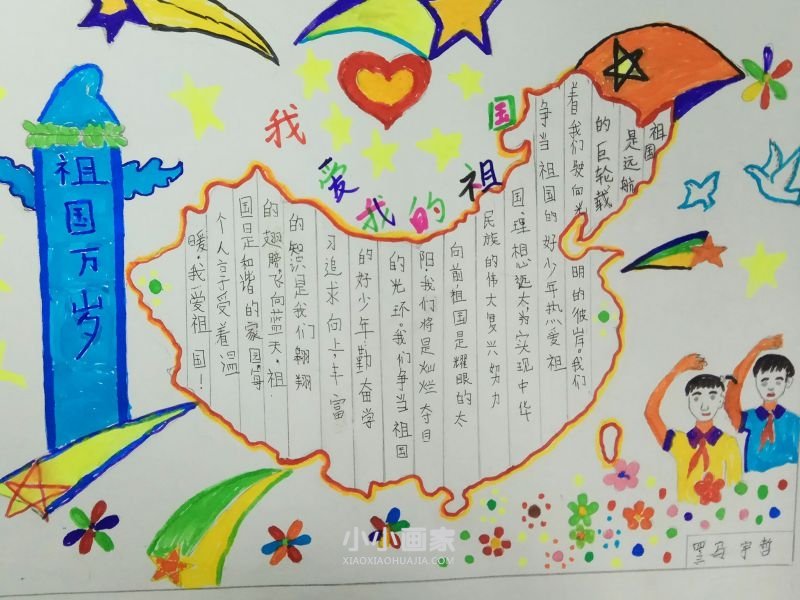 我爱我的祖国
祖国万岁
祖国
是远航
的巨轮载
着我们驶向光明的彼岸。我们
争当祖国的好少年热爱祖
国,理想远大,为实现中华
民族的伟大复兴努力
向前,祖国是耀眼的太
阳,我们将是灿烂夺目
的光环。我们争当祖国
的好少年,勤奋学
习追求向上,丰富
的知识是我们翱翔
的翅膀飞向蓝天。祖
国是和谐的家园,每
个人享受着温
暖。我爱祖国!
马宇哲
小小画家
XIAOXIAOHUAJIA.COM